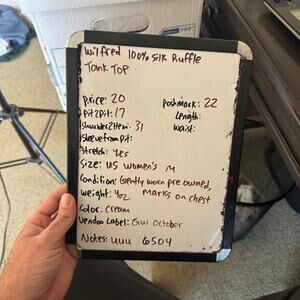 Wilfred 100% Silk Ruffle
Tank Top
Price: 20
Postmark: 22
Pit2Pit: 17
Length:
Shoulder2Hem: 31
Waist:
Sleeve from pit:
Stretch: Yes
Size: US Women's M
Condition: Gently worn preowned,
marks on chest
Weight: 4oz
Color: Cream
Vendoo Label: GW October
Notes: 6504